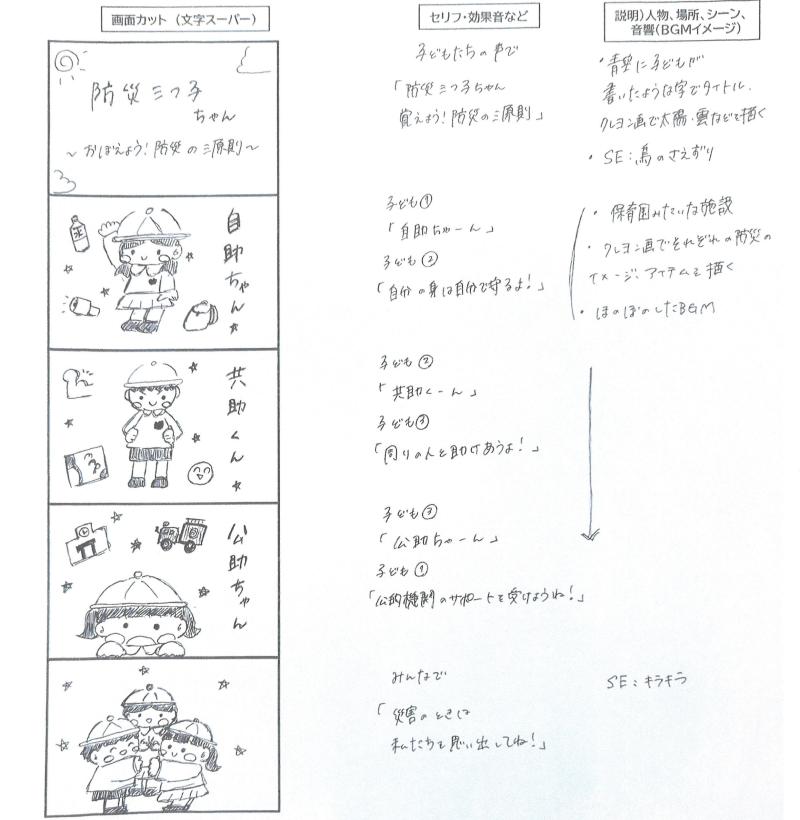 画面カット（文字スーパー）
セリフ・効果音など
説明）人物、場所、シーン、
音響（BGMイメージ）
防災三つ子
ちゃん
～おぼえよう！防災の三原則～
子どもたちの声で
「防災三つ子ちゃん
覚えよう！防災の三原則」
・青空に子どもが
書いたような字でタイトル．
クレヨン画で太陽・雲などを描く
・SE：鳥のさえずり
水
自助ちゃん
子ども①
「自助ちゃーん」
子ども②
「自分の身は自分で守るよ！」
・保育園みたいな施設
・クレヨン画でそれぞれの防災の
イメージ、アイテムを描く
・ほのぼのしたBGM
共助くん
子ども②
「共助くーん」
子ども③
「周りの人と助けあうよ！」
公助ちゃん
子ども③
「公助ちゃーん」
子ども①
「公的機関のサポートを受けようね！」
みんなで
「災害のときは
私たちを思い出してね！」
SE：キラキラ